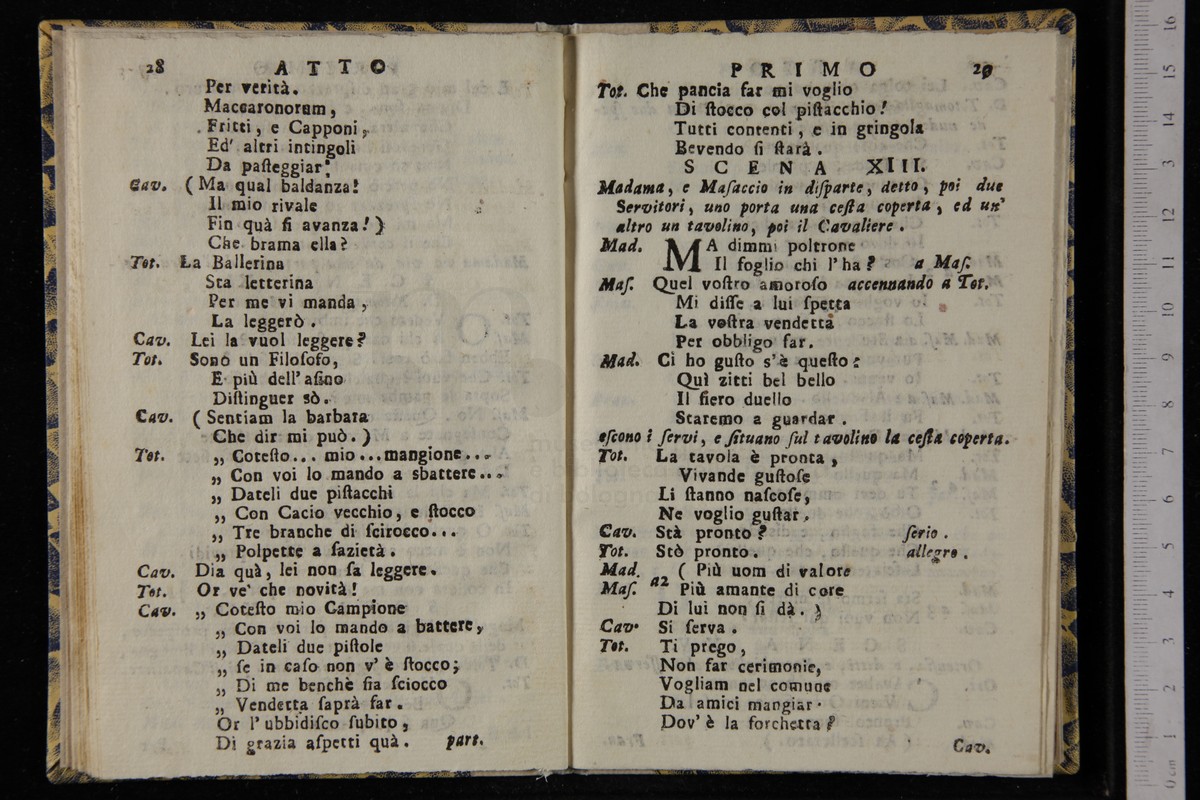 28 ATTO
Per verità.
Maccaronorum,
Fritti, e Capponi,
Ed' altri intingoli
Da paſteggiar.
Cav. (Ma qual baldanza!
Il mio rivale
Fin quà ſi avanza!)
Che brama ella?
Tot. La Ballerina
Sta letterina
Per me vi manda,
La leggerò.
Cav. Lei la vuol leggere?
Tot. Sono un Filoſofo,
E più dell' aſino
Diſtinguer sò.
Cav. (Sentiam la barbara
Che dir mi può.)
Tot. „ Coteſto... mio ...mangione...
„ Con voi lo mando a sbattere...
„ Dateli due piſtacchi
„ Con Cacio vecchio, e ſtocco
„ Tre branche di ſcirocco...
„ Polpette a ſazietà.
Cav. Dia quà, lei non ſa leggere.
Tot. Or ve' che novità!
Cav. „ Coteſto mio Campione
„ Con voi lo mando a battere,
„ Dateli due piſtole
„ ſe in caſo non v' è ſtocco;
„ Di me benchè ſia ſciocco
„ Vendetta ſaprà far.
Or l' ubbidiſco ſubito,
Di grazia aſpetti quà. part.
PRIMO 29
Tot. Che pancia far mi voglio
Di ſtocco col piſtacchio!
Tutti contenti, e in gringola
Bevendo ſi ſtarà.
SCENA XIII.
Madama, e Maſaccio in diſparte, detto, poi due
Servitori, uno porta una ceſta coperta, ed un'
altro un tavolino, poi il Cavaliere.
Mad. MA dimmi poltrone
Il foglio chi l' ha? a Maſ.
Maſ. Quel voſtro amoroſo accennando a Tot.
Mi diſſe a lui ſpetta
La voſtra vendetta
Per obbligo far.
Mad. Ci ho guſto s' è queſto:
Quì zitti bel bello
Il fiero duello
Staremo a guardar.
eſcono i ſervi, e ſituano ſul tavolino la ceſta coperta.
Tot. La tavola è pronta,
Vivande guſtoſe
Li ſtanno naſcoſe,
Ne voglio guſtar.
Cav. Stà pronto? ſerio.
Tot. Stò pronto. allegro.
Mad. (Più uom di valore
Maſ. a2 Più amante di core
Di lui non ſi dà.)
Cav. Si ſerva.
Tot. Ti prego,
Non far cerimonie,
Vogliam nel comune
Da amici mangiar.
Dov' è la forchetta?
Cav.